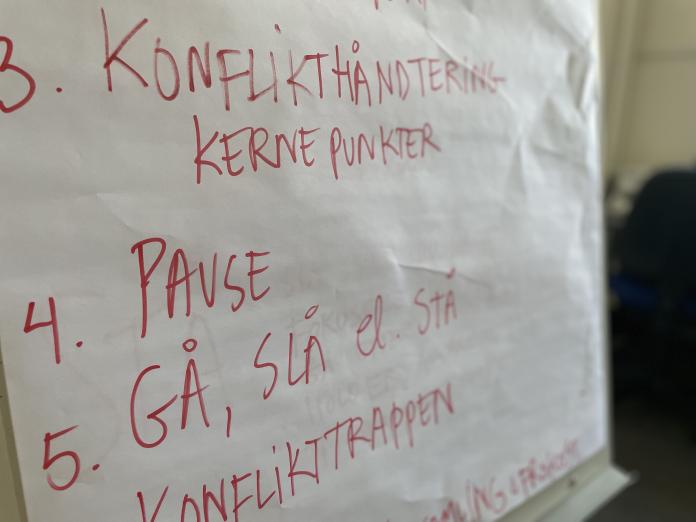 3. KONFLIKTHÅNDTERING
KERNEPUNKTER
4. PAUSE
GÅ, SLÅ el. STÅ
5. KONFLIKTTRAPPEN